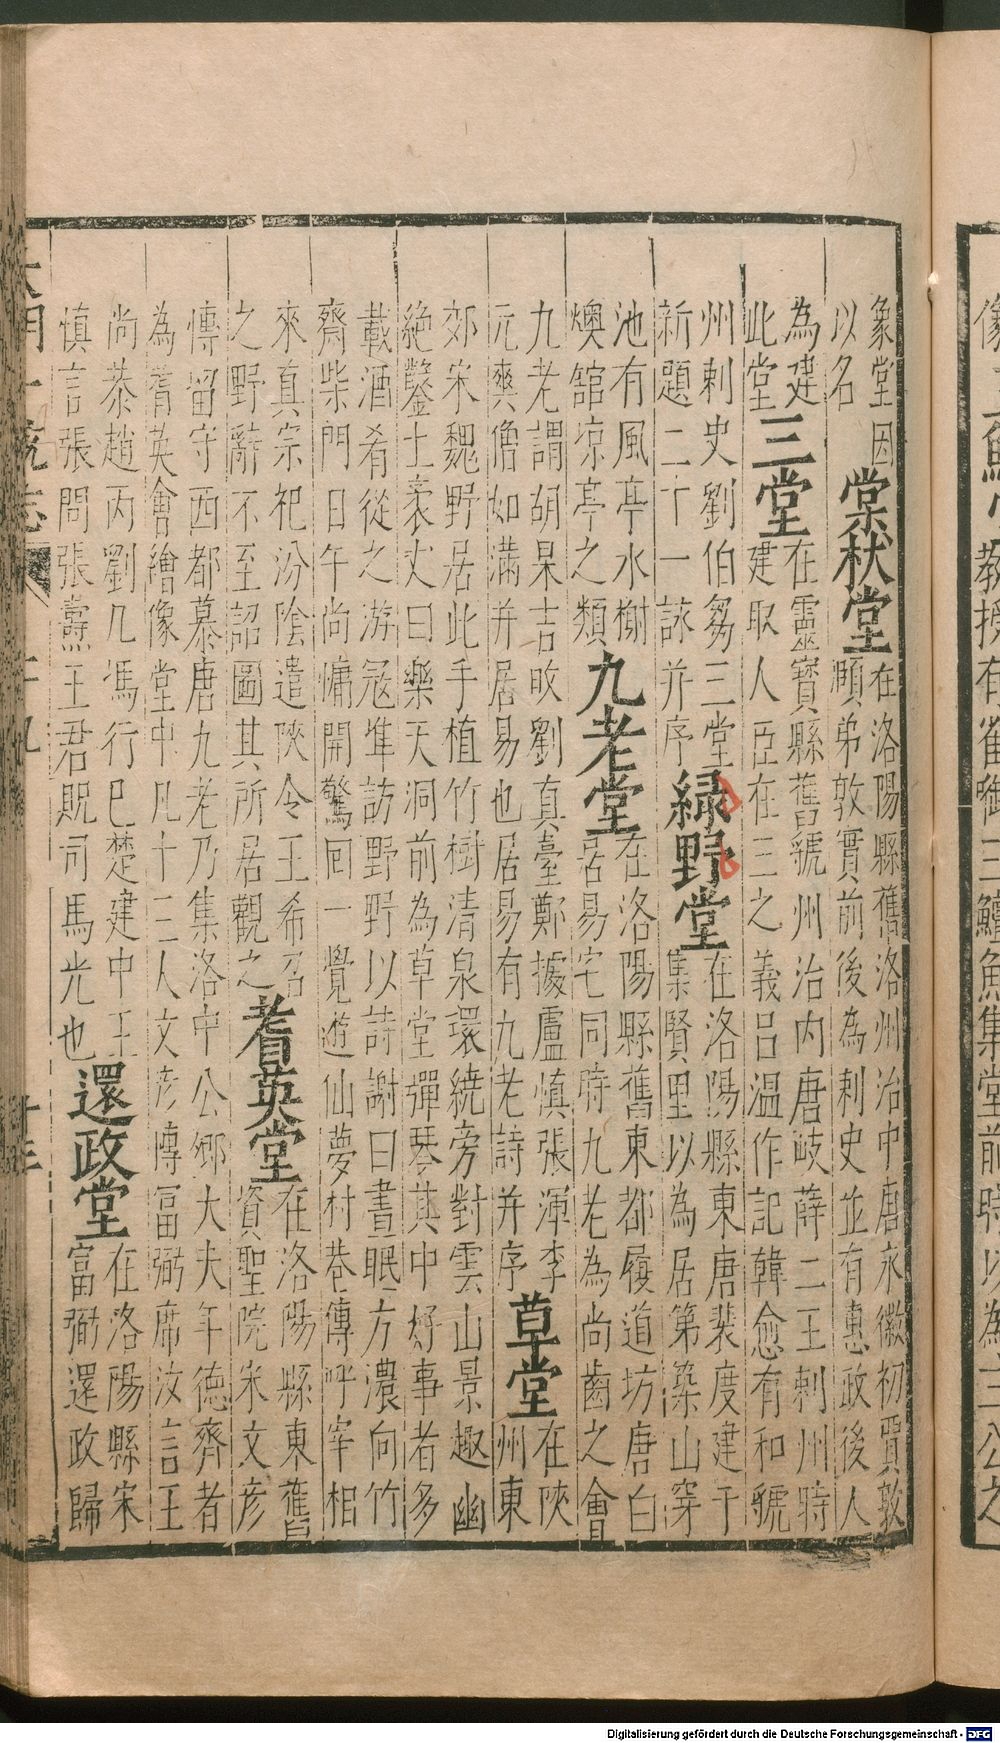 教授有雀銜三鱣魚集堂前時以為三公之
象堂因
以名
棠杕堂
在洛陽縣舊洛州治中唐永徽初賈敦
頥弟敦實前後為刺史並有惠政後人
為建
此堂
三堂
在靈寶縣舊虢州治内唐岐薛二王刺州時
建取人臣在三之義吕温作記韓愈有和虢
州刺史劉伯芻三堂
新題二十一詠并序
緑野堂
在洛陽縣東唐裴度建于
集賢里以為居第築山穿
池有風亭水榭
燠舘凉亭之類
九老堂
在洛陽縣舊東都履道坊唐白
居易宅同時九老為尚齒之會
九老謂胡杲吉旼劉真臺鄭據盧慎張渾李
元爽僧如滿并居易也居易有九老詩并序
草堂
在陜
州東
郊宋魏野居此手植竹樹清泉環繞旁對雲山景趣幽
絶鑿土袤丈曰樂天洞前為草堂彈琴其中好事者多
載酒肴從之游冦凖訪野野以詩謝曰晝眠方濃向竹
齋柴門日午尚慵開驚回一覺遊仙夢村巷傳呼宰相
來真宗祀汾陰遣陜令王希召
之野辭不至詔圖其所居觀之
耆英堂
在洛陽縣東舊
資聖院宋文彦
傳留守西都慕唐九老乃集洛中公卿大夫年德齊者
為耆英會繪像堂中凡十三人文彦博富弼席汝言王
尚恭趙丙劉几馮行巳楚建中王
慎言張問張燾王君貺司馬光也
還政堂
在洛陽縣宋
富弼還政歸
Digitalisierung gefördert durch die Deutsche Forschungsgemeinschaft - DFG